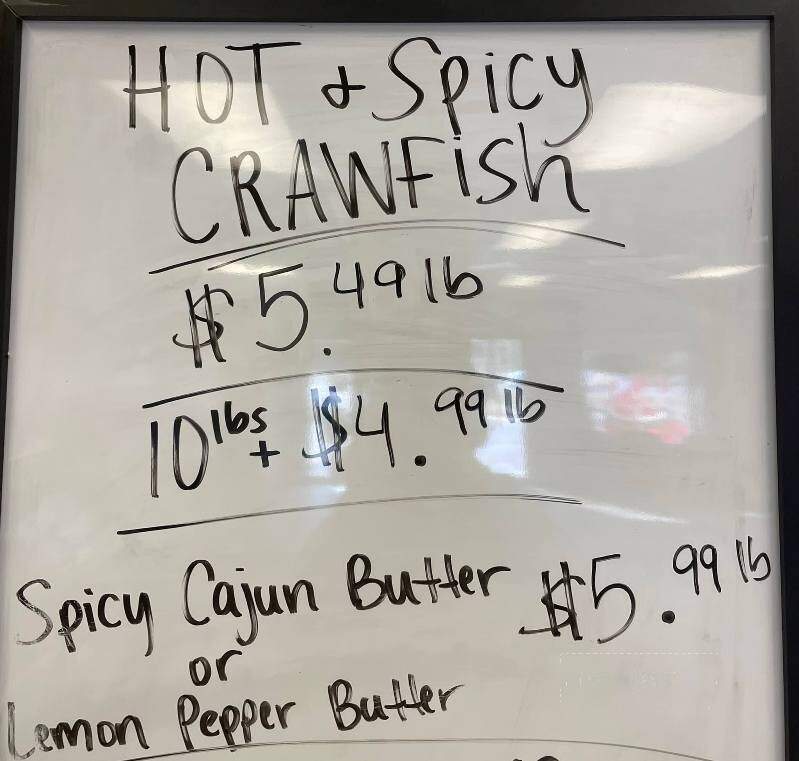 HOT & Spicy
CRAWFish
$5.49 lb
10 lbs + $4.99 lb
Spicy Cajun Butter $5.99 lb
or
Lemon Pepper Butter